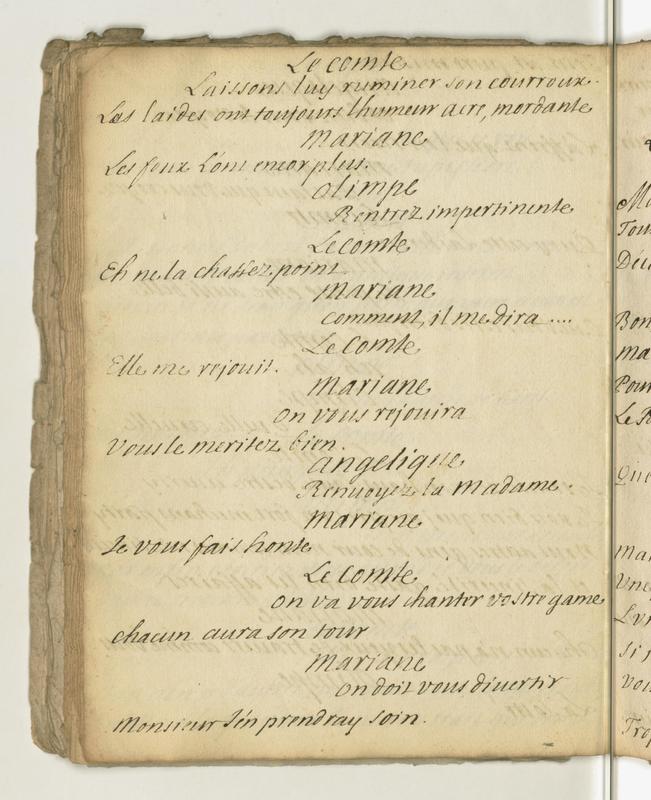 Le comte
Laissons luy ruminer son courroux.
Les laides ont toujours l'humeur acre, mordante
Mariane
Les foux l'ont encor plus.
Olimpe
Rentrez impertinente
Le comte
Eh ne la chassez point
Mariane
comment, il me dira ....
Le Comte
Elle me rejouit.
Mariane
on vous rejouira
Vous le meritez bien.
angelique
Renvoyez la Madame.
Mariane
Je vous fais honte
Le Comte
on va vous chanter vostre game
chacun aura son tour
Mariane
on doit vous divertir
Monsieur J'en prendray soin.
Tou
Bon
Ma
Pour
Le R
Que
Mai
Une
Si j
Vou
Trop